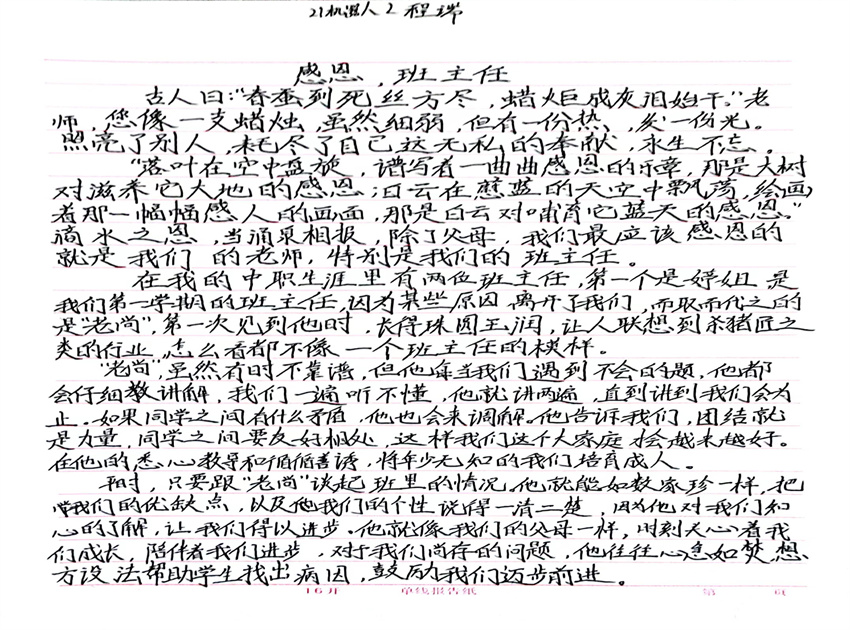 21机器人2 程瑞
感恩，班主任
古人曰："春蚕到死丝方尽，蜡炬成灰泪始干。"老
师，您像一支蜡烛，虽然细弱，但有一份热，发一份光。
照亮了别人，耗尽了自己这无私的奉献，永生不忘。
"落叶在空中盘旋，谱写着一曲曲感恩的乐章，那是大树
对滋养它大地的感恩；白云在蔚蓝的天空中飘荡，绘画
着那一幅幅感人的画面，那是白云对哺育它蓝天的感恩。"
滴水之恩，当涌泉相报，除了父母，我们最应该感恩的
就是我们的老师，特别是我们的班主任。
在我的中职生涯里有两位班主任，第一个是婷姐 是
我们第一学期的班主任，因为某些原因离开了我们，而取而代之的
是"老尚"，第一次见到他时，长得珠圆玉润，让人联想到杀猪匠之
类的行业，怎么看都不像一个班主任的模样。
"老尚"，虽然有时不靠谱，但他每当我们遇到不会的题，他都
会仔细教讲解，我们一遍听不懂，他就讲两遍，直到讲到我们会为
止。如果同学之间有什么矛盾，他也会来调解。他告诉我们，团结就
是力量，同学之间要友好相处，这样我们这个大家庭才会越来越好。
在他的悉心教导和循循善诱，将年少无知的我们培育成人。
平时，只要跟"老尚"谈起班里的情况。他就能如数家珍一样，把
我们的优缺点，以及他我们的个性说得一清二楚，因为他对我们知
心的了解，让我们得以进步。他就像我们的父母一样，时刻关心着我
们成长，陪伴着我们进步，对于我们尚存的问题，他往往心急如焚，想
方设法帮助学生找出病因，鼓励我们迈步前进。
16开 单线报告纸 第 页